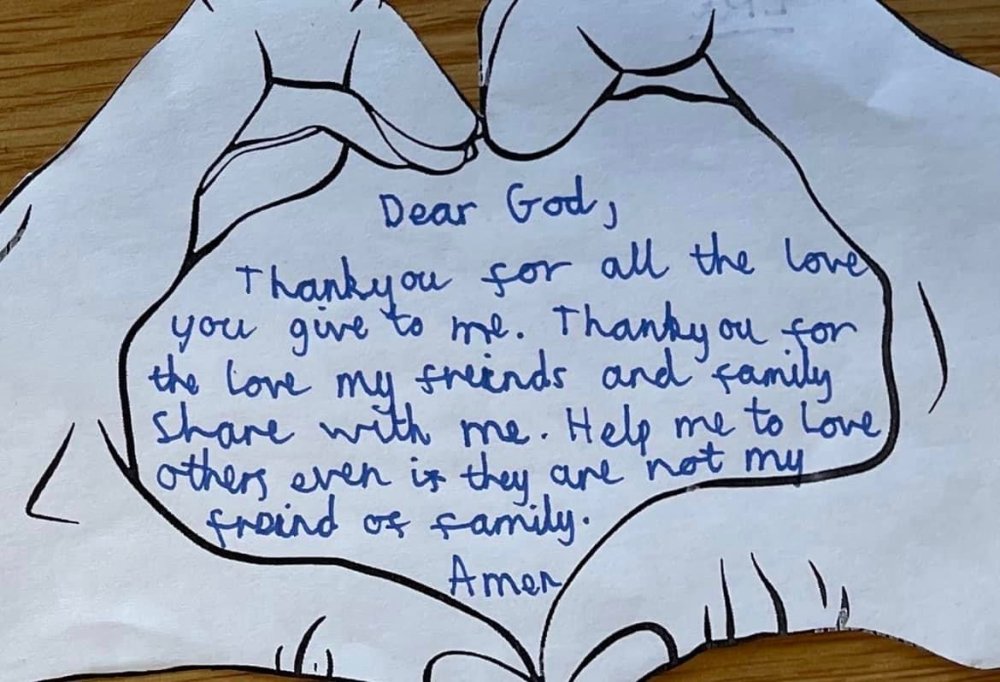 Dear God,
Thankyou for all the love
you give to me. Thankyou for
the love my freinds and family
share with me. Help me to love
others even if they are not my
freind of family.
Amen